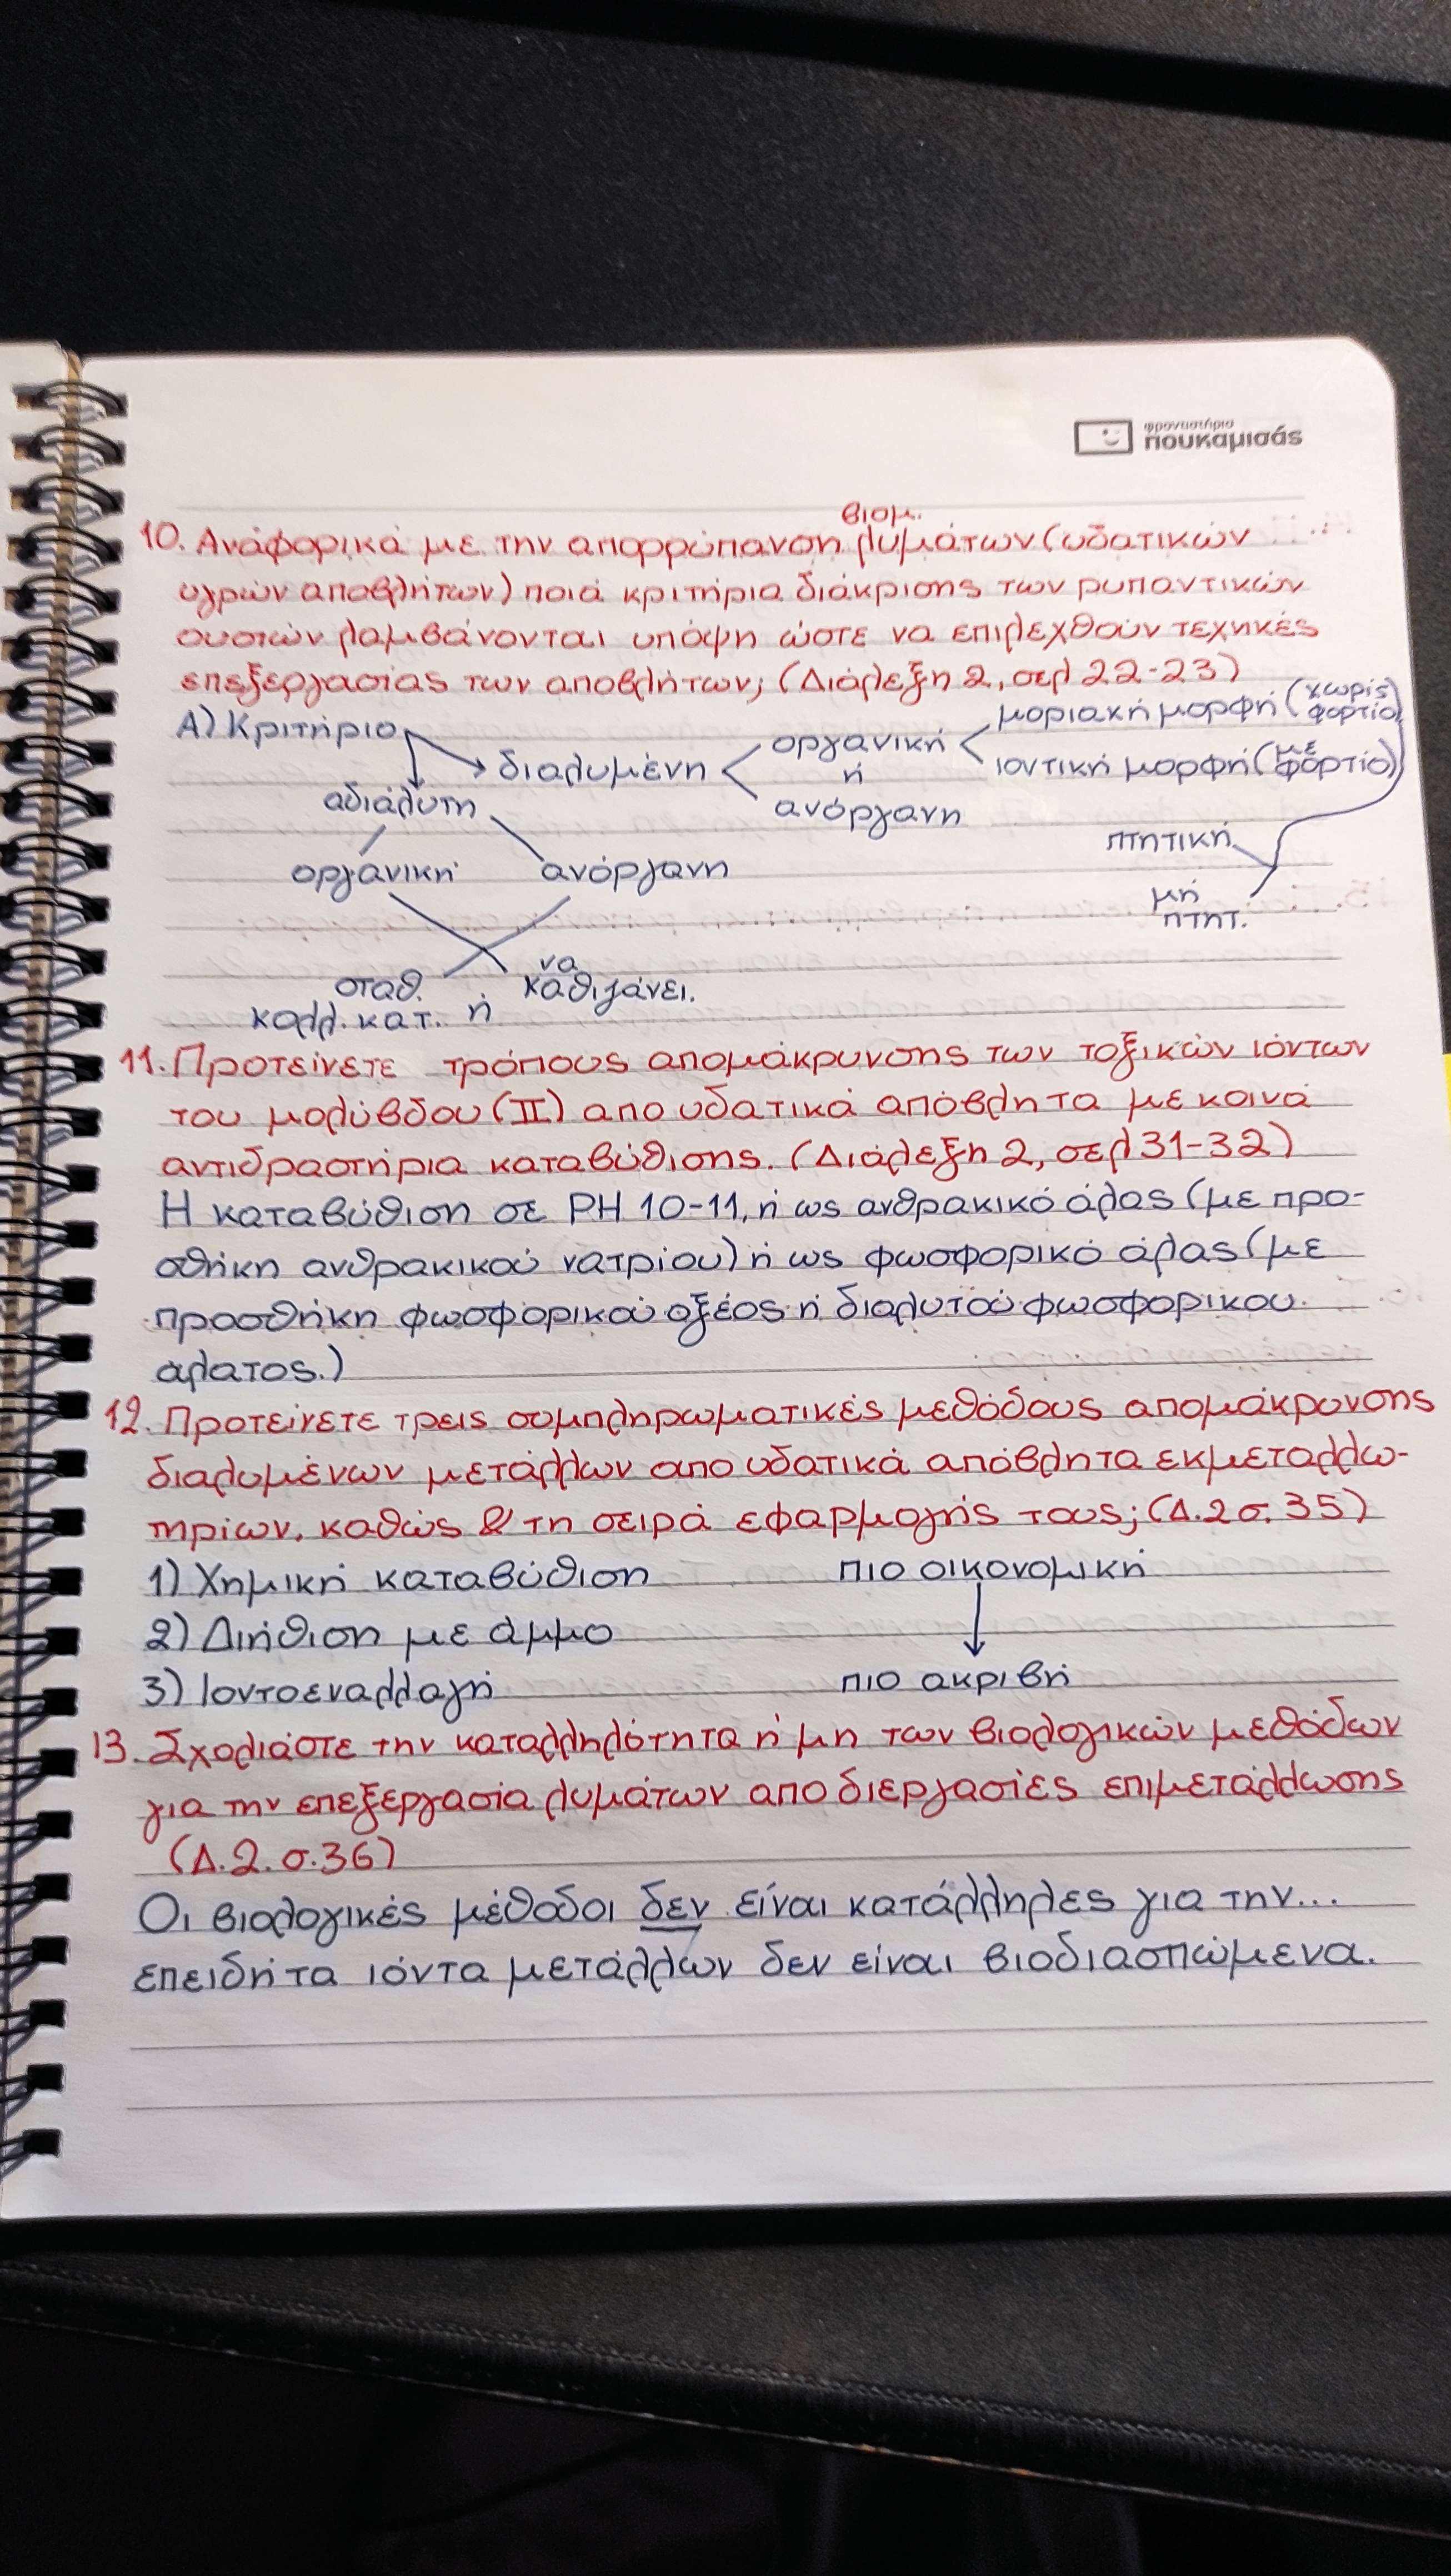 φροντιστήρια
πουκαμισάς
βιομ.
10. Αναφορικά με την απορρύπανση λυμάτων (υδατικών
υγρών αποβλήτων) ποιά κριτήρια διάκρισης των ρυπαντικών
ουσιών λαμβάνονται υπόψη ώστε να επιλεχθούν τεχνικές
επεξεργασίας των αποβλήτων; (Διάλεξη 2, σελ 22-23)
Α) Κριτήριο
διαλυμένη
οργανική
ή
ανόργανη
μοριακή μορφή (χωρίς φορτίο)
ιοντική μορφή (με φορτίο)
πτητική
μή
πτητ.
αδιάλυτη
οργανική
ανόργανη
σταθ.
κολλ. κατ. ή
να
καθιζάνει.
11. Προτείνετε τρόπους απομάκρυνσης των τοξικών ιόντων
του μολύβδου (ΙΙ) απο υδατικά απόβλητα με κοινά
αντιδραστήρια καταβύθισης. (Διάλεξη 2, σελ 31-32)
Η καταβύθιση σε PH 10-11, ή ως ανθρακικό άλας (με προ-
σθήκη ανθρακικού νατρίου) ή ως φωσφορικό άλας (με
προσθήκη φωσφορικού οξέος ή διαλυτού φωσφορικου
άλατος.)
12. Προτείνετε τρεις συμπληρωματικές μεθόδους απομάκρυνσης
διαλυμένων μετάλλων απο υδατικά απόβλητα εκμεταλλω-
τηρίων, καθώς & τη σειρά εφαρμογής τους; (Δ.2 σ. 35)
1) Χημική καταβύθιση πιο οικονομική
2) Διήθιση με άμμο
3) Ιοντοεναλλαγή πιο ακριβή
13. Σχολιάστε την καταλληλότητα ή μη των βιολογικών μεθόδων
για την επεξεργασία λυμάτων απο διεργασίες επιμετάλλωσης
(Δ.2. σ.36)
Οι βιολογικές μέθοδοι δεν είναι κατάλληλες για την...
επειδή τα ιόντα μετάλλων δεν είναι βιοδιασπώμενα.